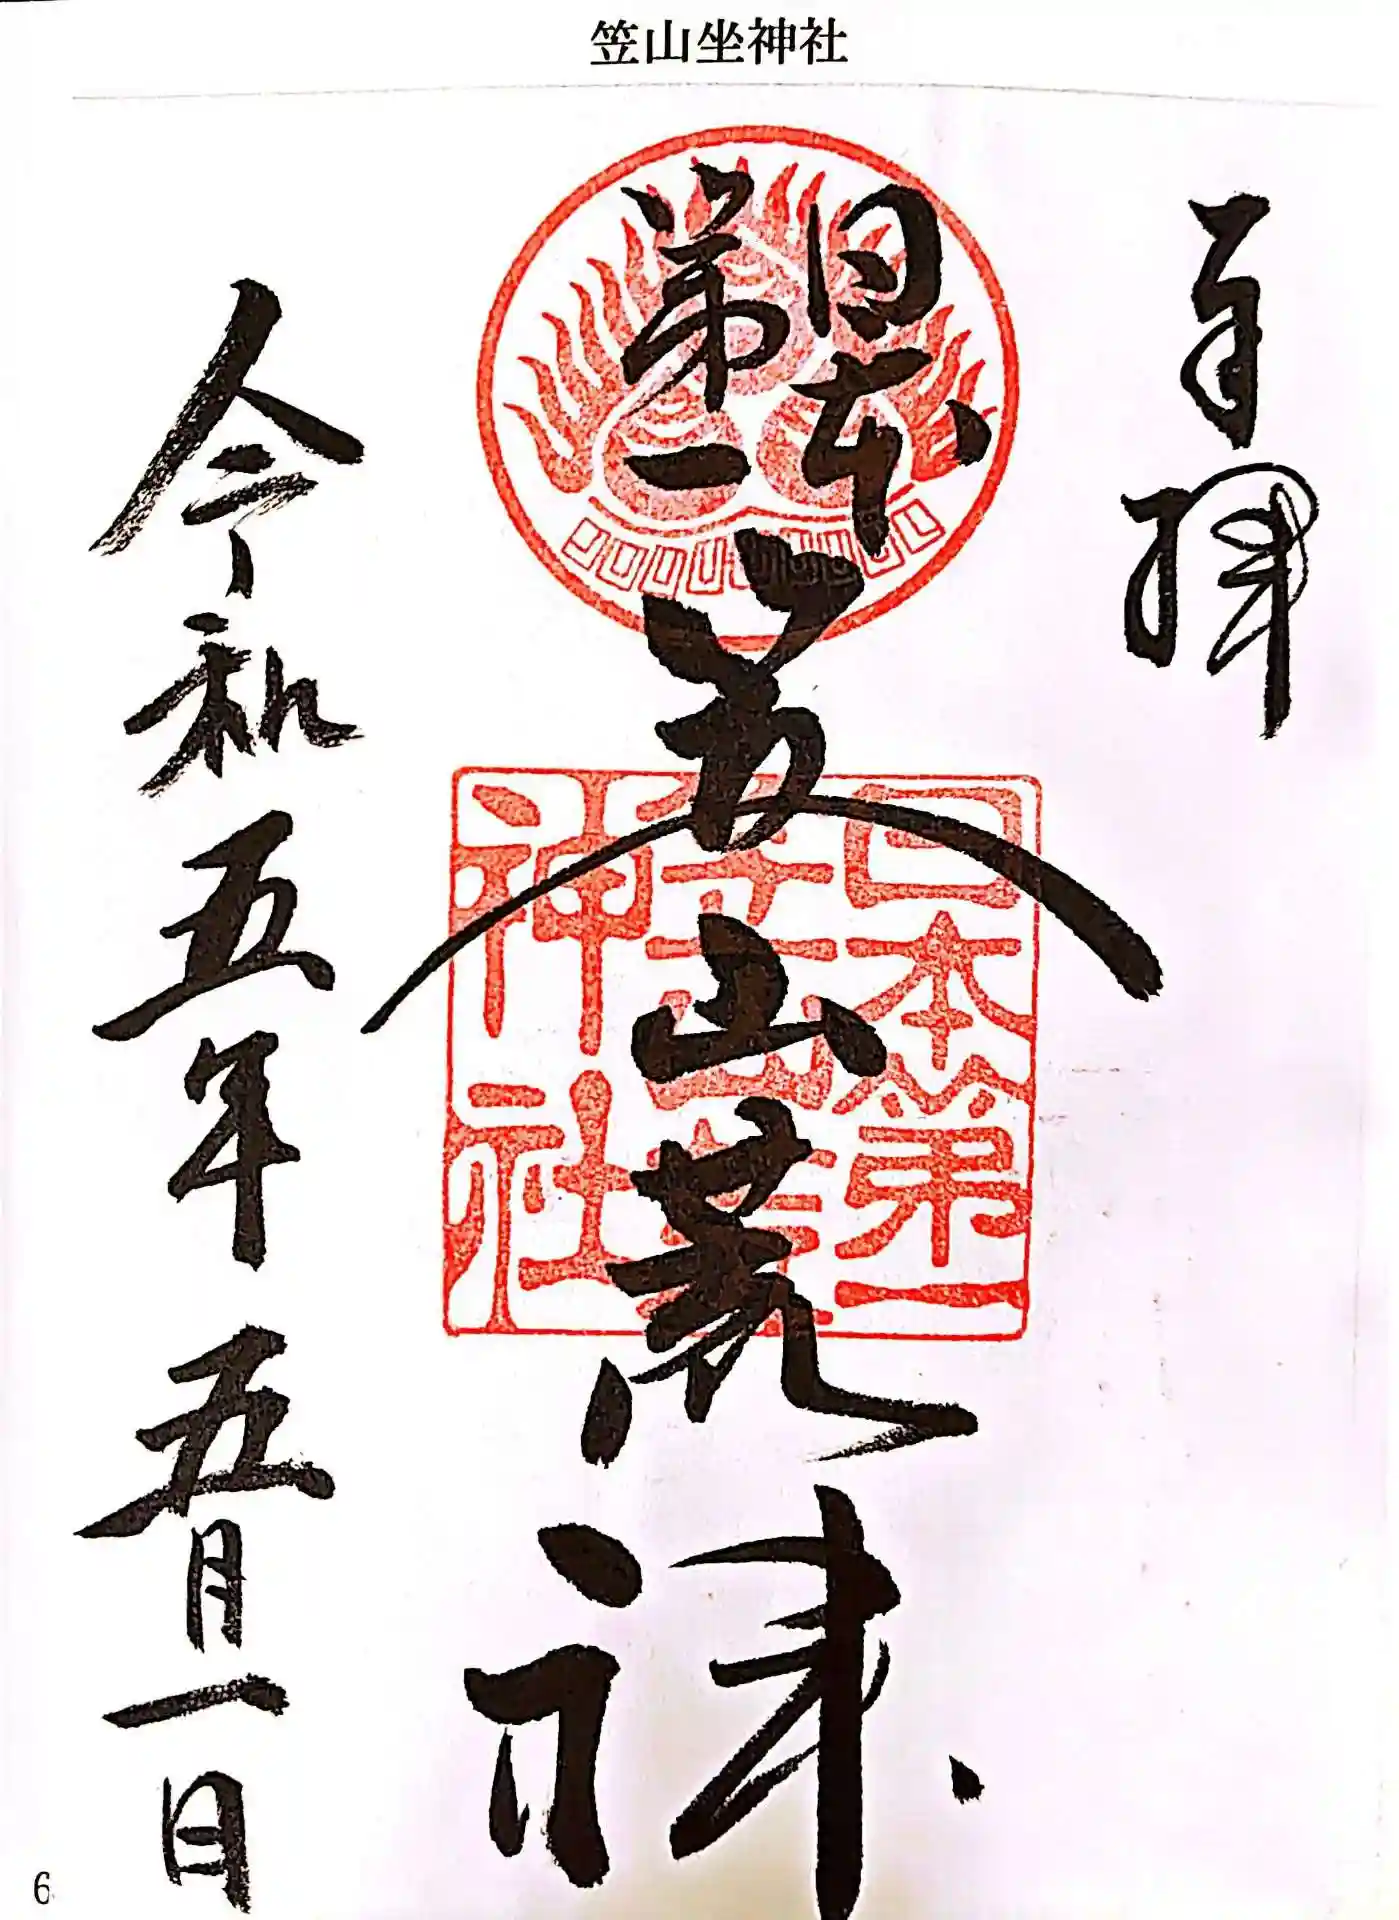 笠山坐神社
奉拝
日本
第一
笠山荒神
日本第一
笠山荒
神社
令和五年五月一日
6